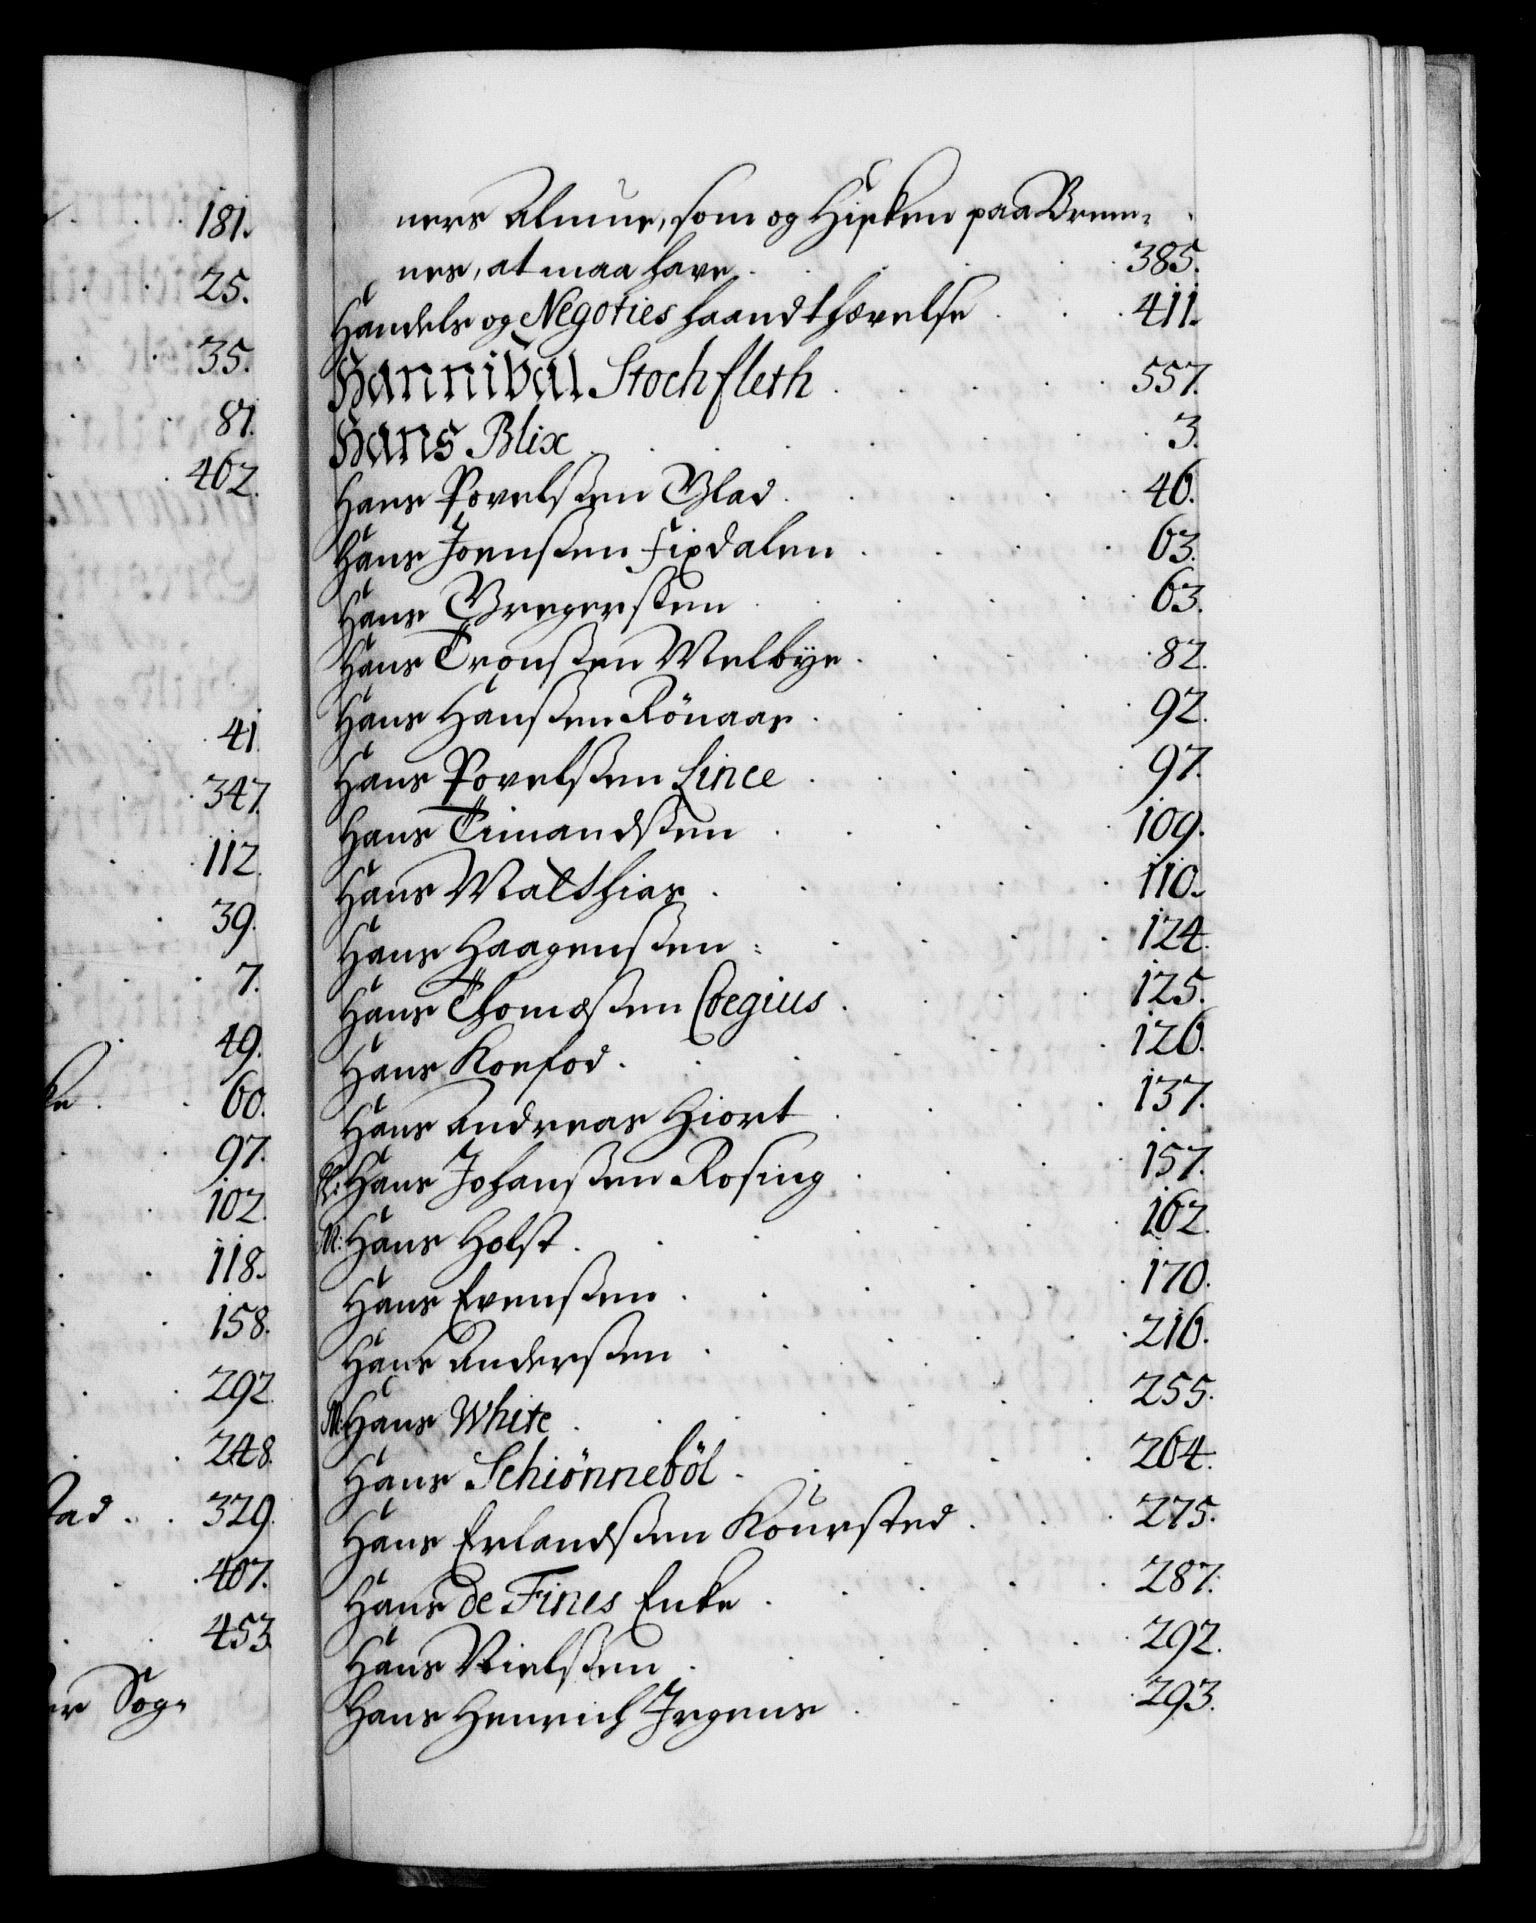 181.
25.
35.
87.
462.
41.
347.
112.
39.
7.
49.
ke . 60.
97.
102.
118.
158.
292.
248.
tad . . 329.
407.
453.
er Sog-
ners Almue, som og Kirken paa Brem-
nes, at maa have . 385.
Handels og Negoties haandthævelse . 411.
Hannibal Stochfleth . 557.
Hans Blix . 3.
Hans Povelssen Blad . 46.
Hans Joenssen Fixdalen . 63.
Hans Gregerssen . 63.
Hans Tronssen Melbye . 82.
Hans Hanssen Rönaas . 92.
Hans Povelssen Lince . 97.
Hans Timandssen . 109.
Hans Matthias . 110.
Hans Haagenssen . 124.
Hans Thomessen Coegius . 125.
Hans Kofod . 126.
Hans Andreas Hiort . 137.
Hans Johanssen Rosing . 157.
M: Hans Holst . 162.
Hans Evenssen . 170.
Hans Anderssen . 216.
M: Hans White . 255.
Hans Schiönneböl . 264.
Hans Erlandssen Koursted . 275.
Hans de Fines Enke . 287.
Hans Nielssen . 292.
Hans Henrich Jrgens . 293.